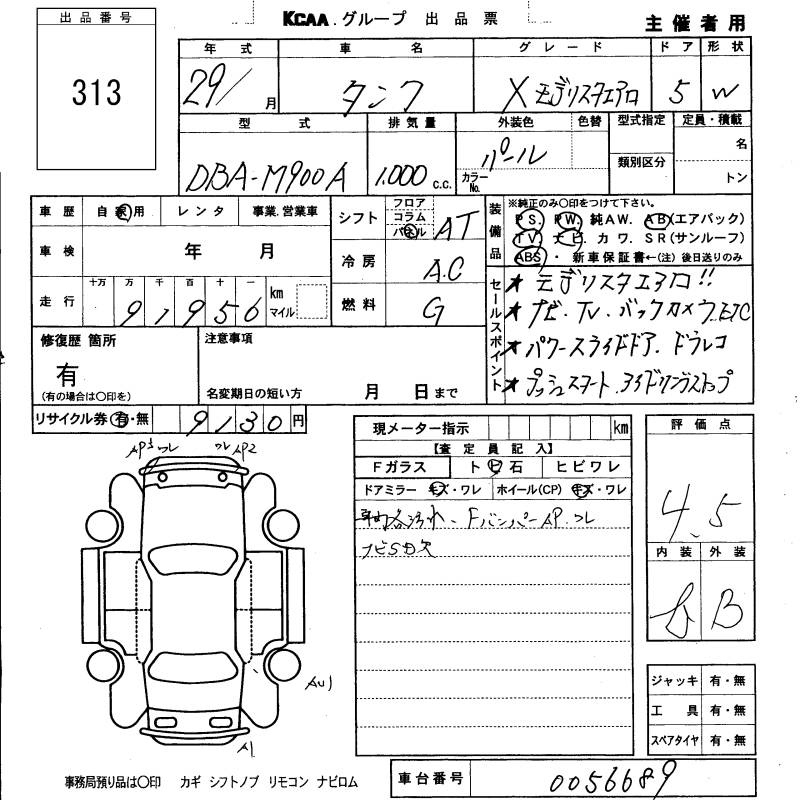 出品番号
313
KCAA.グループ 出品票
主催者用
年式 車名 グレード ドア 形状
29/ 月 タンク X モデリスタエアロ 5 W
型式 排気量 外装色 色替 型式指定 定員・積載
DBA-M900A 1,000 c.c. パール カラーNo. 類別区分 名 トン
車歴 自家用 レンタ 事業.営業車
シフト フロア コラム パネル AT
装備品
※純正のみ○印をつけて下さい。
PS. PW. 純AW. AB(エアバック)
TV. ナビ. カワ. SR(サンルーフ)
ABS・新車保証書←(注)後日送りのみ
車検 年 月
冷房 A.C
走行 十万 万 千 百 十 一 km マイル
91956
燃料 G
セールスポイント
★モデリスタエアロ!!
★ナビ.TV.バックカメラ.ETC
★パワースライドドア.ドラレコ
★プッシュスタート.アイドリングストップ
修復歴 箇所
有
(有の場合は○印を)
注意事項
名変期日の短い方 月 日まで
リサイクル券 有・無 9130円
現メーター指示 km
【査定員記入】
Fガラス ト ビ 石 ヒビワレ
ドアミラー キズ・ワレ ホイール(CP) キズ・ワレ
車内各汚れ.FバンパーAP.ワレ
ナビSD欠
評価点
4.5
内装 外装
B B
AP3 ワレ ワレ AP2
AU1
A1
ジャッキ 有・無
工具 有・無
スペアタイヤ 有・無
事務局預り品は○印 カギ シフトノブ リモコン ナビロム
車台番号 0056689